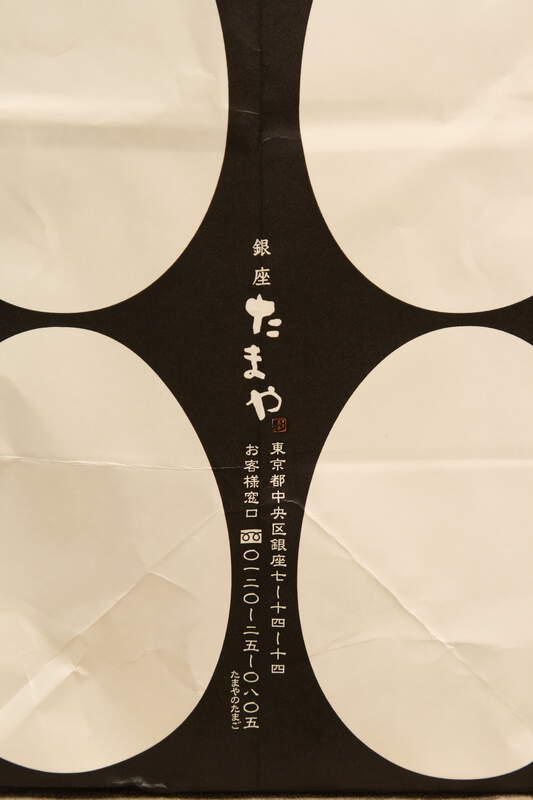 銀座
たまや
東京都中央区銀座七〜十四〜十四
お客様窓口 〇一二〇〜二五〜〇八〇五
たまやのたまご